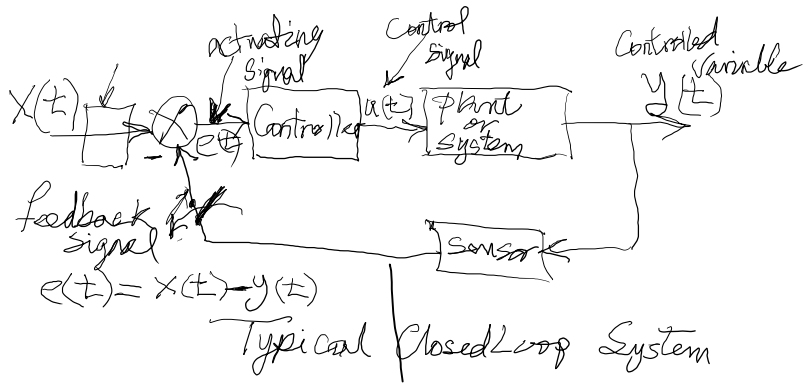 Actuating
Signal
Control
Signal
Controlled
Variable
X(t)
e(t)
Controller
u(t)
Plant
or
System
y(t)
-
feedback
Signal
Sensor
e(t) = X(t) - y(t)
Typical Closed Loop System